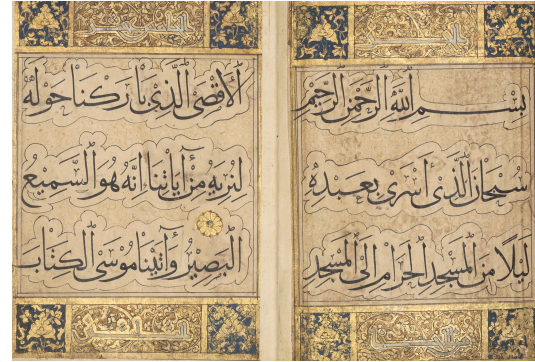 بِسْمِ اللَّهِ الرَّحْمَنِ الرَّحِيمِ
سُبْحَانَ الَّذِي أَسْرَى بِعَبْدِهِ
لَيْلًا مِنَ الْمَسْجِدِ الْحَرَامِ إِلَى الْمَسْجِدِ
الْأَقْصَى الَّذِي بَارَكْنَا حَوْلَهُ
لِنُرِيَهُ مِنْ آيَاتِنَا إِنَّهُ هُوَ السَّمِيعُ
الْبَصِيرُ وَآتَيْنَا مُوسَى الْكِتَابَ